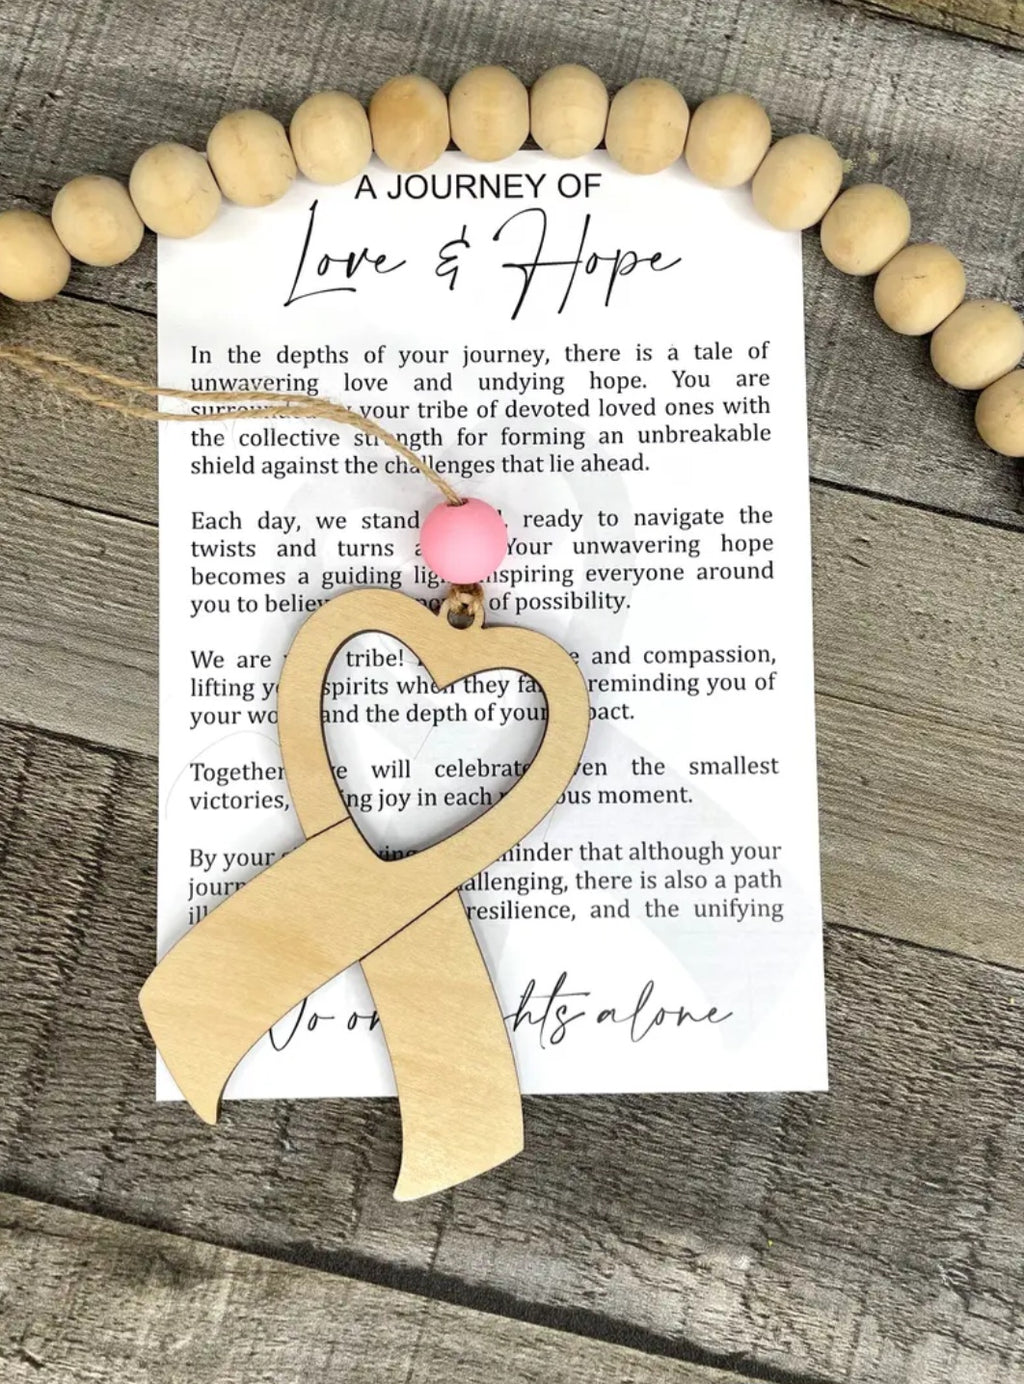 A JOURNEY OF
Love & Hope
In the depths of your journey, there is a tale of
unwavering love and undying hope. You are
surrounded by your tribe of devoted loved ones with
the collective strength for forming an unbreakable
shield against the challenges that lie ahead.
Each day, we stand ready to navigate the
twists and turns Your unwavering hope
becomes a guiding light, inspiring everyone around
you to believe of possibility.
We are tribe! and compassion,
lifting spirits when they reminding you of
your and the depth of your impact.
Together we will celebrate even the smallest
victories, joy in each moment.
By your that although your
challenging, there is also a path
resilience, and the unifying
No one fights alone